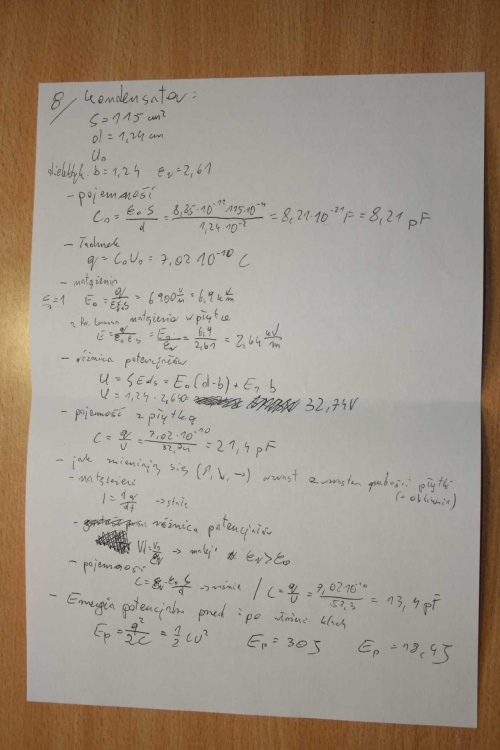 8/ Kondensator:
S = 115 cm²
d = 1,24 cm
U₀
dielektryk. b = 1,24 εᵣ = 2,61
- pojemność
C₀ = ε₀·S/d = 8,85·10⁻¹² 115·10⁻⁴/1,24·10⁻² = 8,21·10⁻²¹ F = 8,21 pF
- Ładunek
q = C₀U₀ = 7,02 10⁻¹⁰ C
- natężenie
= 1 E₀ = q/εε₀S = 6900 V/m = 6,9 kV/m
natężenia w płytce
E = q/ε₀εS = E₀/εᵣ = 6,9/2,61 = 2,64 kV/m
- różnica potencjałów
U = ∫Eds = E₀(d-b) + E₁·b
U = 1,24 · 2,640 = 32,74V
- pojemość z płytką
C = q/U = 7,02·10⁻¹⁰/32,74 = 21,4 pF
- jak zmieniają się (↑, ↓, →) wraz z grubości płytki
- natężenie
→ stałe
- różnica potencjałów
→ maleje εᵣ > ε₀
- pojemność
C = εᵣ·ε₀ S/d → rośnie / C = q/U = 7,02·10⁻¹⁰/52,3 = 13,4 pF
- Energia potencjalna przed i po
Eₚ = q²/2C = 1/2 CU² Eₚ = 30J Eₚ = 18,4J